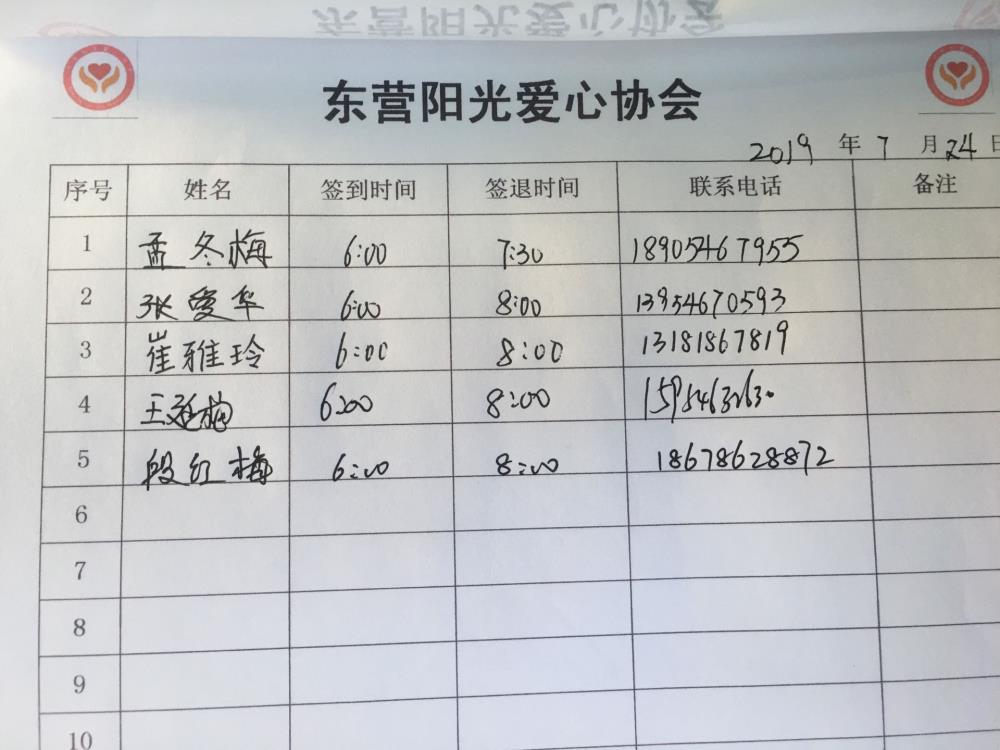 东营阳光爱心协会
2019 年 7 月 24 日
序号 姓名 签到时间 签退时间 联系电话 备注
1 孟冬梅 6:00 7:30 18905467955
2 张爱华 6:00 8:00 13954670593
3 崔雅玲 6:00 8:00 13181867819
4 王 梅 6:00 8:00
5 段红梅 6:00 8:00 18678628872
6
7
8
9
10